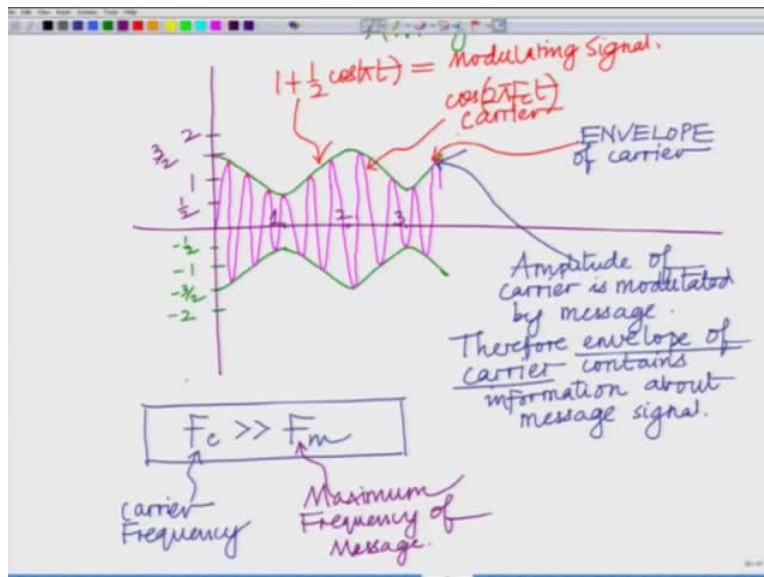 1 + 1/2 cos(πt) = Modulating Signal.
cos(2πFct)
carrier
ENVELOPE
of carrier
2
3/2
1
1/2
1
2
3
-1/2
-1
-3/2
-2
Amplitude of
carrier is modulated
by message.
Therefore envelope of
carrier contains
information about
message signal.
Fc >> Fm
Carrier
Frequency
Maximum
Frequency of
Message.